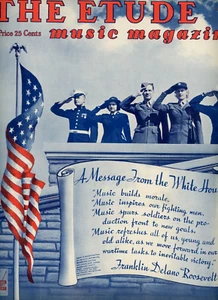 THE ETUDE
Price 25 Cents
music magazin
A Message From the White Hou
"Music builds morale.
"Music inspires our fighting men.
"Music spurs soldiers on the pro-
duction front to new goals.
"Music refreshes all of us, young and
old alike, as we move forward in our
wartime tasks to inevitable victory."
Franklin Delano Roosevelt